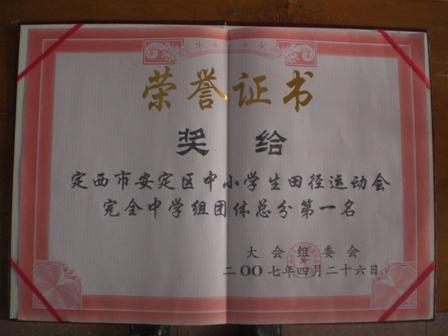 荣誉证书
奖给
定西市安定区中小学生田径运动会
完全中学组团体总分第一名
大会组委会
二〇〇七年四月二十六日